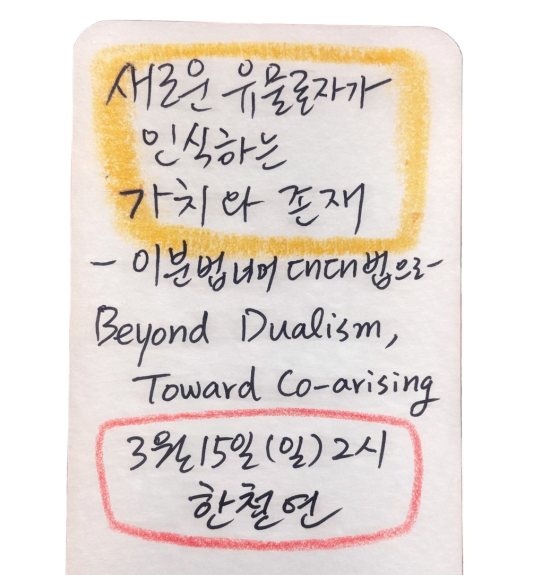 새로운 유물론자가
인식하는
가치와 존재
- 이분법 너머 대대법으로-
Beyond Dualism,
Toward Co-arising
3월 15일(일) 2시
한철연